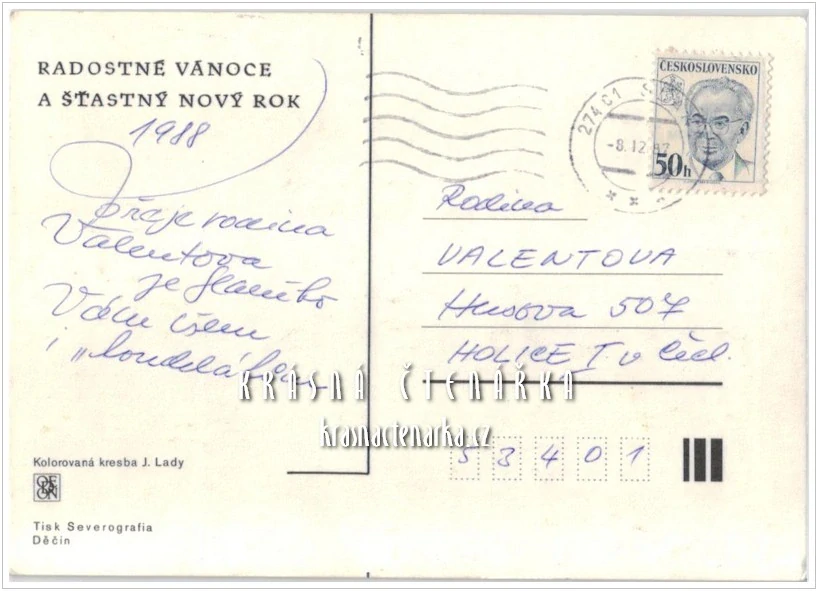 RADOSTNÉ VÁNOCE
A ŠŤASTNÝ NOVÝ ROK
1988
přeje rodina
Valentova
ze Slaného
Vám všem
i „
ČESKOSLOVENSKO
50h
274 01
-8.12.87
Rodina
VALENTOVA
Husova 507
HOLICE I v Čech.
KRÁSNÁ ČTENÁŘKA
krasnactenarka.cz
53401
Kolorovaná kresba J. Lady
ODEON
Tisk Severografia
Děčín